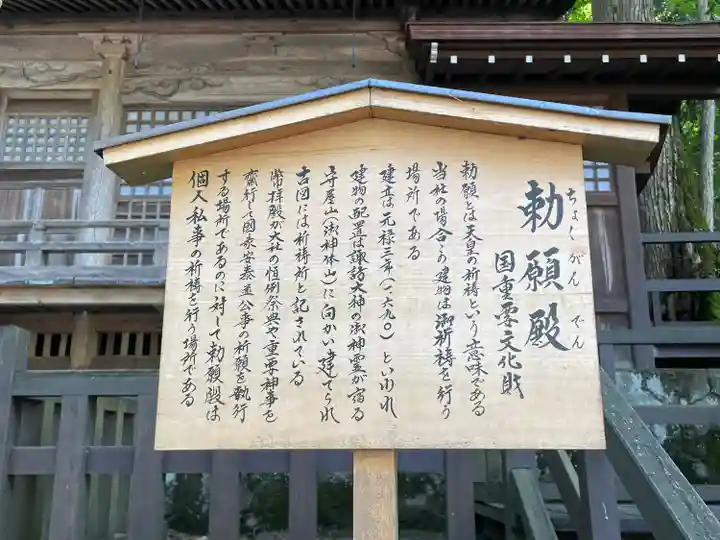 勅願殿
ちょくがんでん
国重要文化財
勅願とは天皇の祈祷という意味である
当社の場合この建物は御祈祷を行う
場所である
建立は元禄三年(一、六九〇)といわれ
建物の配置は諏訪大神の御神霊が宿る
守屋山(御神体山)に向かい建てられ
古図には祈祷所と記されている
幣拝殿が大社の恒例祭典や重要神事を
齋行して国家安泰並公事の祈願を執行
する場所であるのに対して勅願殿は
個人私事の祈祷を行う場所である